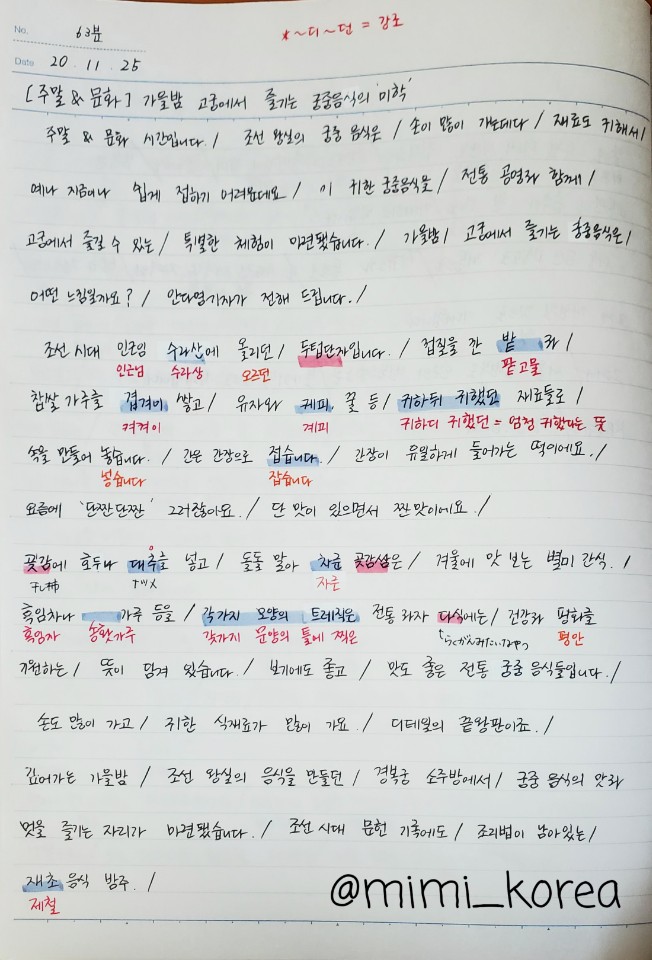 No. 63분
*~디~던 = 강조
Date 20 . 11 . 25
[주말 & 문화] 가을밤 고궁에서 즐기는 궁중음식의 '미학'
주말 & 문화 시간입니다. / 조선 왕실의 궁중 음식은 / 손이 많이 가는데다 / 재료도 귀해서 /
예나 지금이나 쉽게 접하기 어려웠데요 / 이 귀한 궁중음식을 / 전통 공연과 함께 /
고궁에서 즐길 수 있는 / 특별한 체험이 마련됐습니다. / 가을밤 / 고궁에서 즐기는 궁중음식은 /
어떤 느낌일까요? / 안다영기자가 전해 드립니다. /
조선 시대 인근임 수라산에 올리던 / 두텁단자입니다. / 껍질을 깐 밭 과 /
인근님 수라상 오르던 팥고물
찹쌀 가루를 겹겨이 쌓고 / 유자와 케피, 꿀 등 / 귀하듸 귀했던 재료들로 /
켜켜이 계피 귀하디 귀했던 = 엄청 귀했다는 뜻
속을 만들어 놓습니다. / 간은 간장으로 접습니다. / 간장이 유일하게 들어가는 떡이에요. /
넣습니다 잡습니다
요즘에 '단짠단짠' 그러잖아요. / 단 맛이 있으면서 짠 맛이에요. /
곶감에 호두나 대추를 넣고 / 돌돌 말아 차균 곶감쌈은 / 겨울에 맛 보는 별미 간식. /
干し柿 ナツメ 자른
흑임차나 가루 등을 / 각가지 모양의 트레직은 전통 과자 다식에는 / 건강과 평화를
흑임자 송홧가루 갖가지 문양의 틀에 찍은 らくがんみたいなやつ 평안
기원하는 / 뜻이 담겨 있습니다. / 보기에도 좋고 / 맛도 좋은 전통 궁중 음식들입니다. /
손도 많이 가고 / 귀한 식재료가 많이 가요. / 디테일의 끝왕판이죠. /
깊어가는 가을밤 / 조선 왕실의 음식을 만들던 / 경복궁 소주방에서 / 궁중 음식의 맛과
멋을 즐기는 자리가 마련됐습니다. / 조선 시대 문헌 기록에도 / 조리법이 남아있는 /
재초 음식 방주. /
제철
@mimi_korea